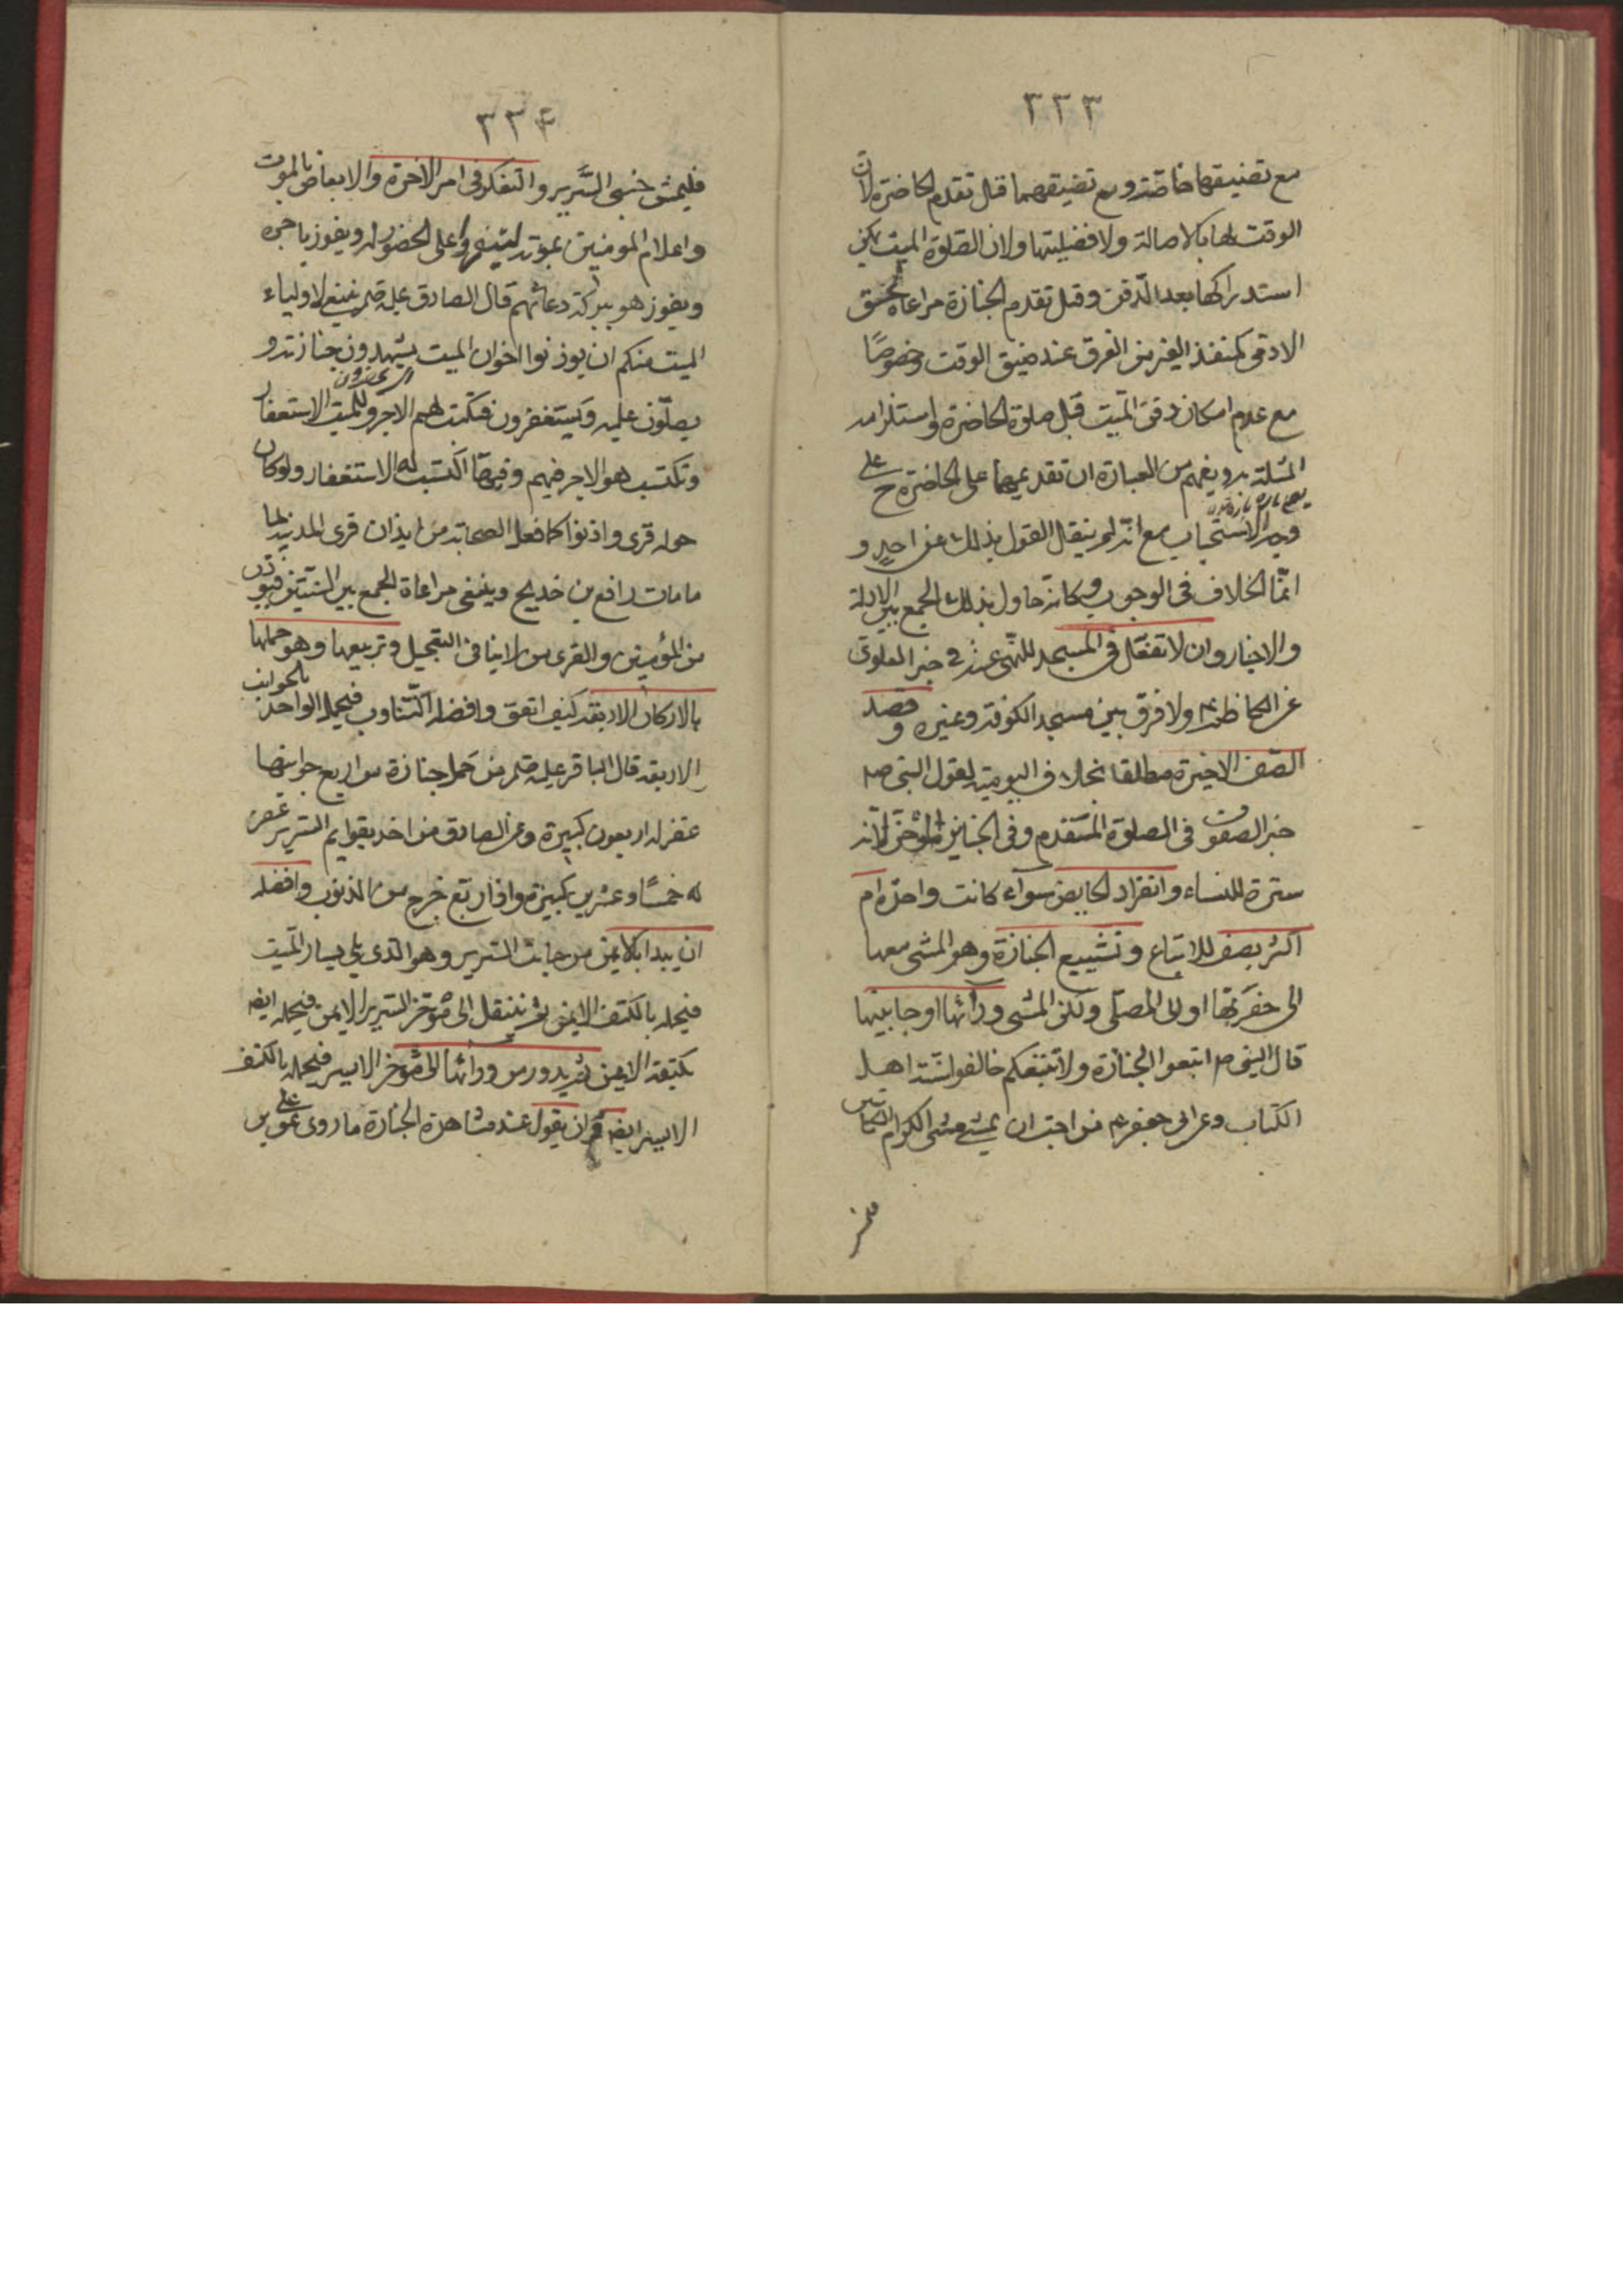 ٣٣٣
مع تضيقها خاصة ومع تضيقهما قيل تقدم الحاضرة لان
الوقت لها بالاصالة ولافضليتها ولان الصلوة الميت يمكن
استدراكها بعد الدفن وقيل تقدم الجنازة مراعاة لحق
الادمى كمنقذ الغير من الغرق عند ضيق الوقت وخصوصًا
مع عدم امكان دفن الميت قبل صلوة الحاضرة واستلزام
المسئلة ويفهم من العبارة ان تقديمها على الحاضرة ح على
وجه الاستحباب مع انه لم ينقل القول بذلك عن احد و
انما الخلاف فى الوجوب وكانه حاول بذلك الجمع بين الادلة
والاخبار وان لا تفعل فى المسجد للنهى عنه فى خبر العلوى
عن الكاظم ع ولا فرق بين مسجد الكوفة وغيره وقصد
الصف الاخيرة مطلقا بخلاف اليومية لقول النبى ص
خير الصفوف فى الصلوة المتقدم وفى الجنايز المؤخر لانه
سترة للنساء وانفراد الحايض سواء كانت واحدة ام
اكثر بصف للاتباع وتشييع الجنازة وهو المشى معها
الى حفرتها او الى المصلى وليكن المشى ورائها او جانبيها
قال النبى ص اتبعوا الجنازة ولا تتبعكم خالفوا سنة اهل
الكتاب وعن ابى جعفر ع من احب ان يمشى ممشى الكرام الكاتبين
فليمش
٣٣٤
فليمش جنبى السرير والتفكر فى امر الاخرة والاتعاظ بالموت
واعلام المومنين بموته ليتوفروا على الحضور له ويفوز باجره
ويفوز هو ببركة دعائهم قال الصادق عليه ينبغى لاولياء
الميت منكم ان يوذنوا اخوان الميت يشهدون جنازته و
يصلون عليه ويستغفرون فيكتب لهم الاجر وللميت الاستغفار
وتكتسب هو الاجر فيهم وفيما اكتسب له الاستغفار ولو كان
حوله قرى واذنوا كما فعل الصحابة من ايذان قرى المدينة لما
مات رافع بن خديج وينبغى مراعاة الجمع بين السنتين فيوذن
من المؤمنين والقرى من لا ينافى التعجيل وتربيعها وهو حملها
بالاركان الاربعة كيف اتفق وافضله التناوب فيحمل الواحد بالجوانب
الاربعة قال الباقر عليه من حمل جنازة من اربع جوانبها
غفر له اربعون كبيرة وعن الصادق من اخذ بقوايم السرير غفر
له خمسًا وعشرين كبيرة واذا ربع خرج من الذنوب وافضله
ان يبدا بالايمن من جانب السرير وهو الذى يلى يسار الميت
فيحمله بالكتف الايمن ثم ينتقل الى مؤخر السرير الايمن فيحمله ايضا
بكتفه الايمن ثم يدور من ورائها الى مؤخر الايسر فيحمله بالكتف
الايسر ان يقول عند مشاهدة الجنازة ما روى